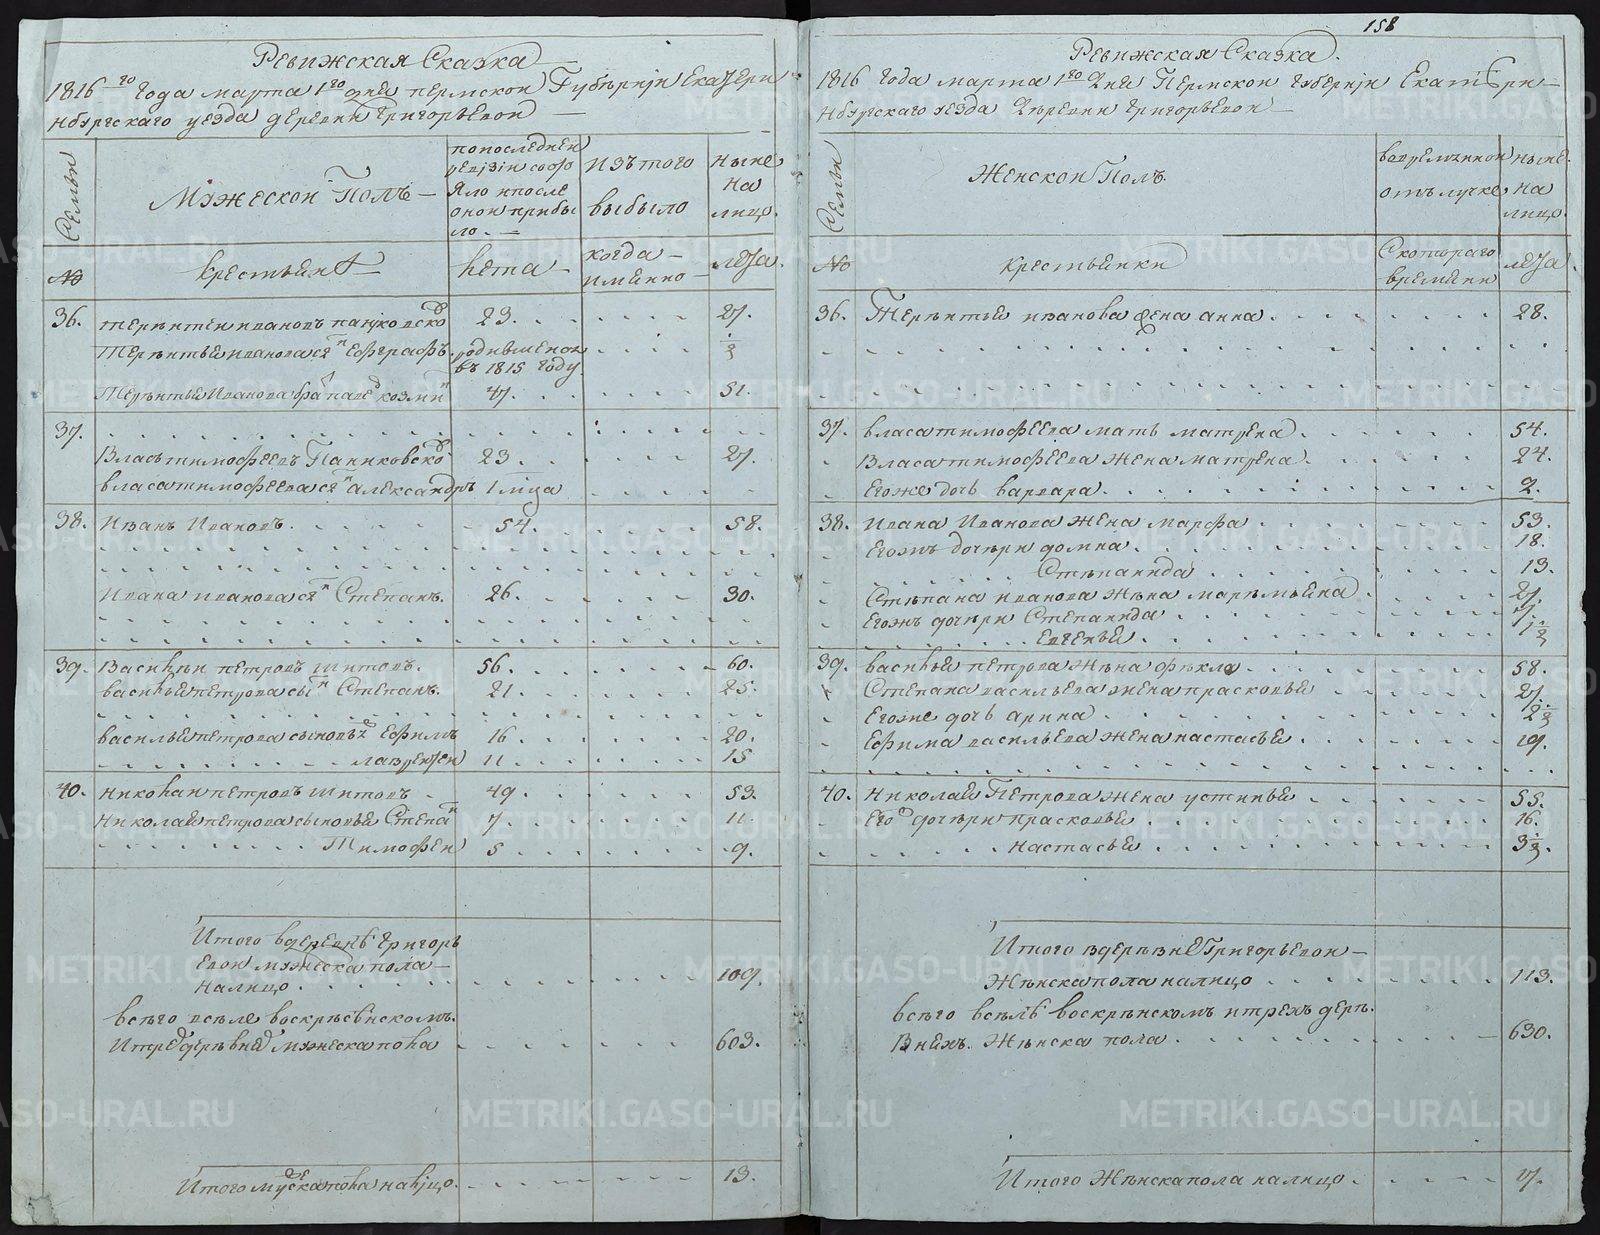 158
Ревижская Сказка
1816 го Года марта 1го дня пермской Губернји Екатери
нбургскаго уезда деревни Григорьевой
Семьи
Мужеской Полъ
попоследней
ревізіи состо
яло ипосле
оной прибы
ло.
изътого
выбыло
ныне
на
лицо.
№
крестьяня
лета
когда
имянно
лета.
36. терентей ивановъ паньковской 23. 27.
Терентья иванова сынъ Ефграфъ. родившейся въ 1815 году 1/2
Терентья Иванова братъ павелъ козминъ 47. 51.
37.
Власъ тимофеевъ Паниковской 23. 27.
власа тимофеева сынъ александръ 1 мца
38. Иванъ Ивановъ. 54. 58.
Ивана иванова сынъ Степанъ. 26. 30.
39. Василеи петровъ шитовъ. 56. 60.
василья петрова сынъ Степанъ. 21. 25.
василья петрова сыновья Ефимъ 16. 20.
лаврентеи 11. 15
40. николаи петровъ шитовъ 49. 53.
николая петрова сыновья Степанъ 7. 11.
Тимофеи 5. 9.
Итого вдеревнѣ григорь
евой мужеска пола
налицо 109.
всего вселе воскресенскомъ.
Итрехъ деревнехъ мужеска пола 603.
Итого мужеска пола налицо. 13.
Ревижская Сказка.
1816 года марта 1го дня Пермской губернји Екатерин
нбургскаго уезда Деревни григорьевой
Семьи
Женской Полъ
вовременной
отълучке
ныне.
на
лицо.
№
крестьянки
Скотораго
времяни
лета.
36. Терентья иванова жена анна. 28.
37. власа тимофеева мать матрена. 54.
Власа тимофеева жена матрена. 24.
Егоже дочь варвара. 2.
38. Ивана Иванова жена марфа. 53.
Егожъ дочери домна. 18.
Степанида 13.
Степана иванова жена маремьяна 27.
Егожъ дочери Степанида 7.
Евгенья. 1 1/2
39. василья петрова жена фекла. 58.
Степана васильева жена прасковья 27.
Егоже дочь арина. 2 1/2
Ефима васильева жена настасья. 19.
40. Николая Петрова жена устинья 55.
Его дочери прасковья. 16.
настасья 3 1/2.
Итого вдеревне Григорьевой
Женска пола налицо 113.
всего вселѣ воскресенскомъ итрехъ дере.
Внехъ. Женска пола. 630.
Итого Женска пола налицо. 17.